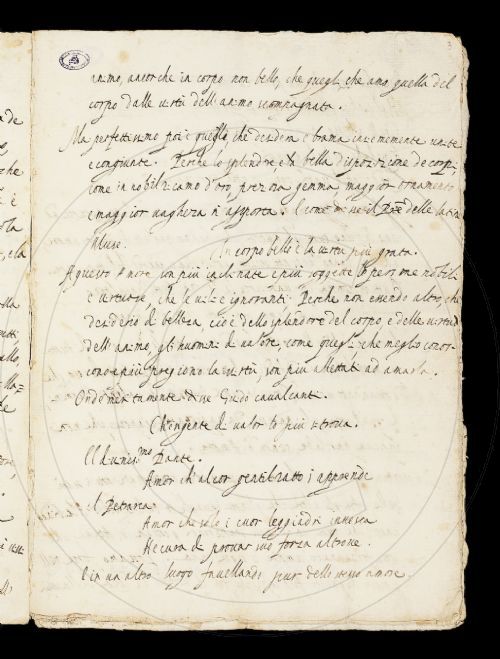 animo, ancor che in corpo non bello, che quegli che ama quella del
corpo dalle virtù dell'animo scompagnata.
Ma perfettissimo poi è quello, che desidera e brama insiememente unite
e congiunte. Perche lo splendore, e la bella disposizione de corpi,
come in nobil ricamo d'oro, preziosa gemma maggior ornamento
e maggior vaghezza n'apporta. E come disse il della latine
Muse. In corpo bello è la virtù più grata.
A questo Amore son più inclinate e più soggette le persone nobili
e virtuose, che le vili e ignoranti. Perche non essendo altro, che
desiderio di bellezza, cioè dello splendore del corpo, e delle virtù
dell'animo, gli huomini di valore, come quegli che meglio conos-
cono e più pregiono la virtù, son più allettati ad amarla.
Onde meritamente disse Guido Cavalcanti.
Ch'ongente di valor lo più si trova.
E'l Dante.
Amor ch'al cor gentil ratto s'apprende
il Petrarca
Amor che solo i cuor leggiadri invesca
Ne cura di provar suo forza altrove.
E in un altro luogo favellando pur dello stesso amore.